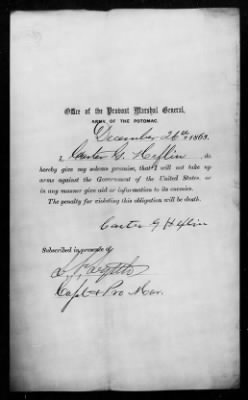 Office of the Provost Marshal General,
ARMY OF THE POTOMAC.
December 26th, 1863.
I, Carter G. Heflin, do
hereby give my solemn promise, that I will not take up
arms against the Government of the United States, or
in any manner give aid or information to its enemies.
The penalty for violating this obligation will be death.
Carter G Heflin
Subscribed in presence of
Capt & Pro Mar.